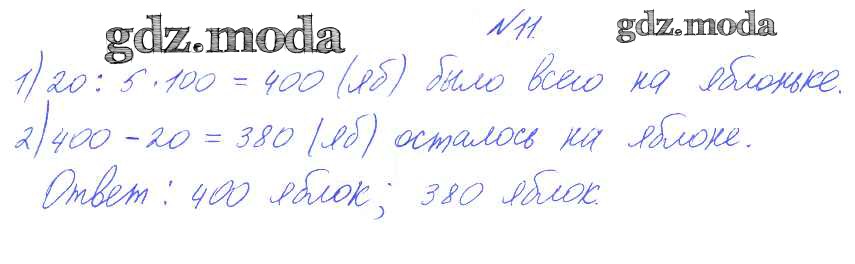 gdz.moda
gdz.moda
№ 11.
1) 20 : 5 · 100 = 400 (яб) было всего на яблоньке.
2) 400 - 20 = 380 (яб) осталось на яблоне.
Ответ: 400 яблок; 380 яблок.